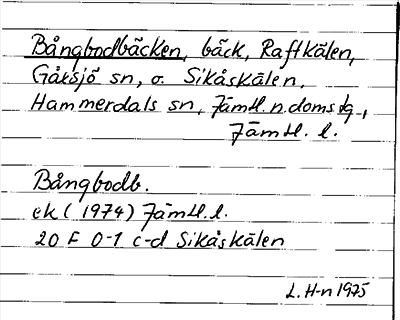 Bångbodbäcken, bäck, Raftkälen,
Gåxsjö sn, o. Sikåskälen,
Hammerdals sn, Jämtl. n. doms tg,
Jämtl. l.
Bångbodb.
ek (1974) Jämtl. l.
20 F 0-1 c-d Sikåskälen
L. H-n 1975